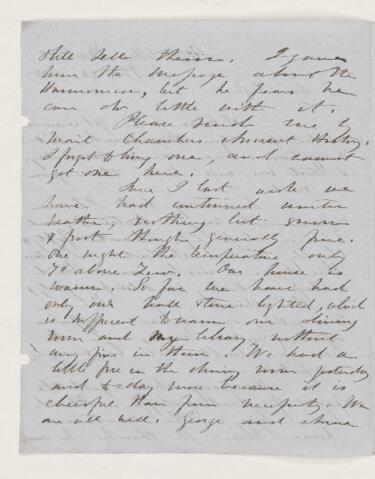 still sell theirs. I gave
him the message about the
but he fears he
can do little with it.
Please send me by
mail Chambers Ancient History.
I forgot to bring one, and cannot
get one here.
Since I last wrote we
have had continued winter
weather, nothing but snow
& frost though generally fine.
One night the temperature only
7° above Zero. Our house is
warm. So far we have had
only our hall stove lighted, which
is sufficient to warm our dining
room and my library without
any fire in them. We had a
little fire in the dining room yesterday
and to-day more because it is
cheerful than from necessity. We
are all well. George and Anna